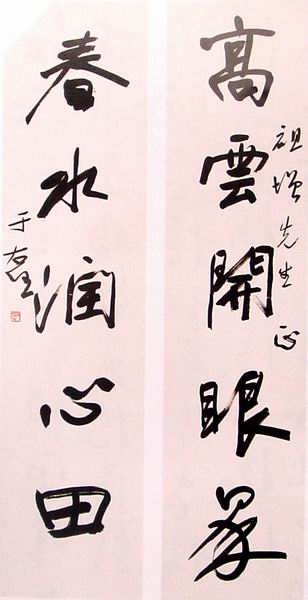 高雲開眼界
祖增先生正
春水潤心田
于右任